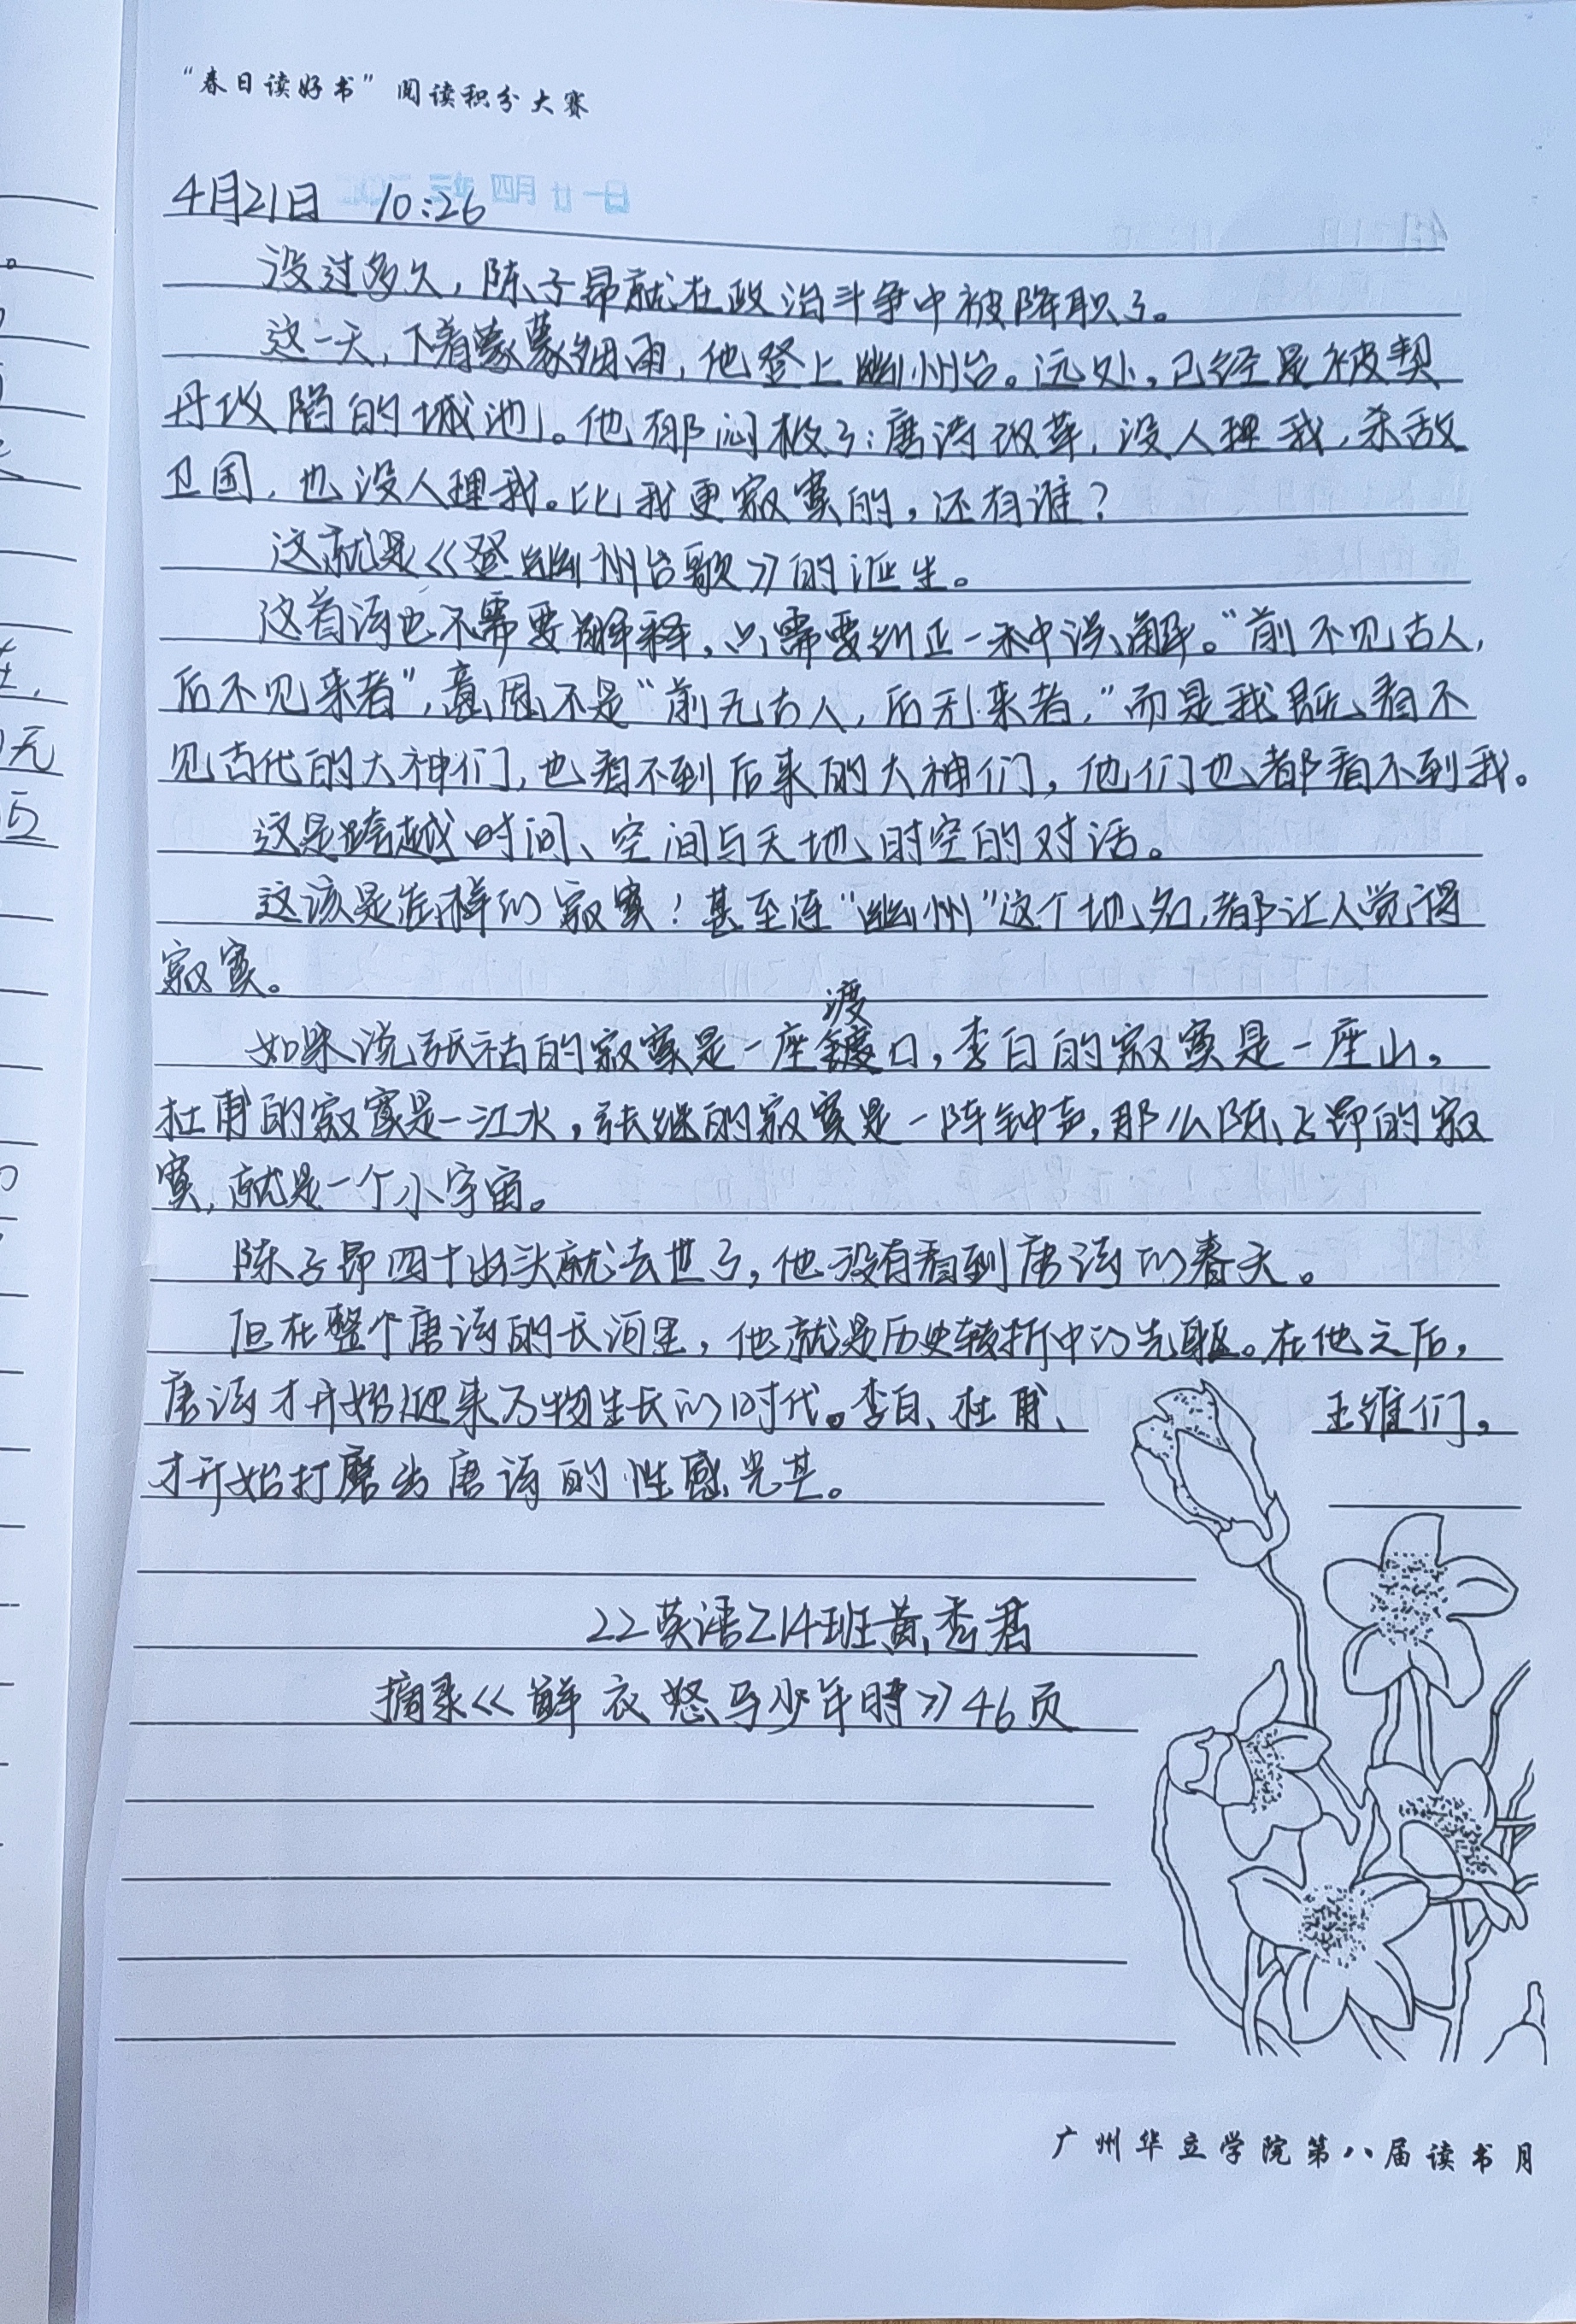 “春日读好书”阅读积分大赛
4月21日 10:26
没过多久，陈子昂就在政治斗争中被降职了。
这一天，下着蒙蒙细雨，他登上幽州台。远处，已经是被契
丹攻陷的城池。他郁闷极了：唐诗改革，没人理我，杀敌
卫国，也没人理我。比我更寂寞的，还有谁？
这就是《登幽州台歌》的诞生。
这首诗也不需要解释，只需要纠正一种误解。“前不见古人，
后不见来者”，意思不是“前无古人，后无来者，”而是我既看不
见古代的大神们，也看不到后来的大神们，他们也都看不到我。
这是跨越时间、空间与天地时空的对话。
这该是怎样的寂寞！甚至连“幽州”这个地名，都让人觉得
寂寞。
如果说张祜的寂寞是一座渡口，李白的寂寞是一座山，
杜甫的寂寞是一江水，张继的寂寞是一阵钟声，那么陈子昂的寂
寞，就是一个小宇宙。
陈子昂四十出头就去世了，他没有看到唐诗的春天。
但在整个唐诗的长河里，他就是历史转折中的先驱。在他之后，
唐诗才开始迎来万物生长的时代。李白、杜甫、王维们，
才开始打磨出唐诗的性感光芒。
22英语Z14班黄秀君
摘录《鲜衣怒马少年时》46页
广州华立学院第八届读书月